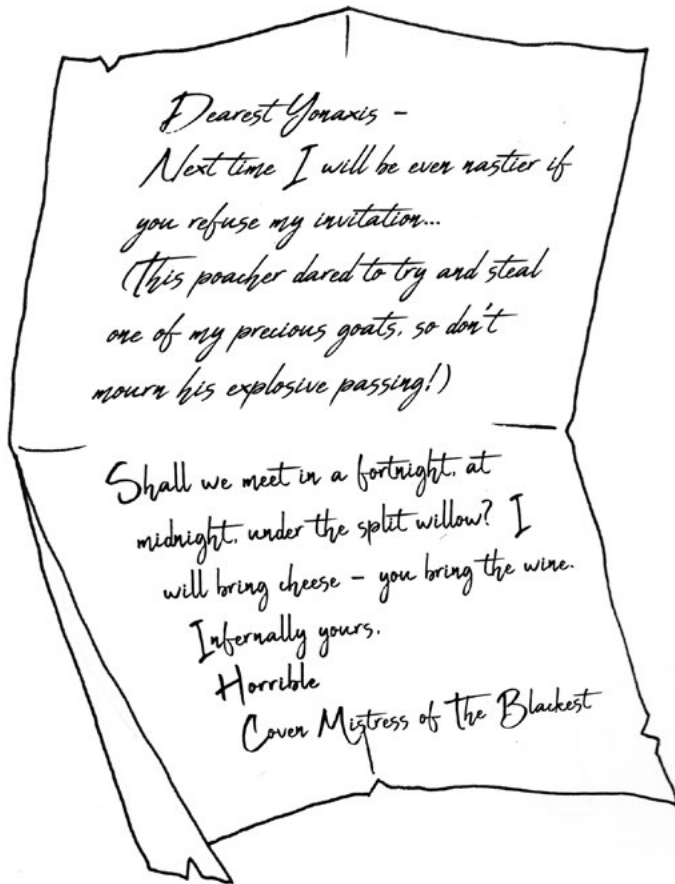 Dearest Yonaxis -
Next time I will be even nastier if
you refuse my invitation...
(This poacher dared to try and steal
one of my precious goats, so don't
mourn his explosive passing!)
Shall we meet in a fortnight, at
midnight, under the split willow? I
will bring cheese - you bring the wine.
Infernally yours,
Horrible
Coven Mistress of the Blackest